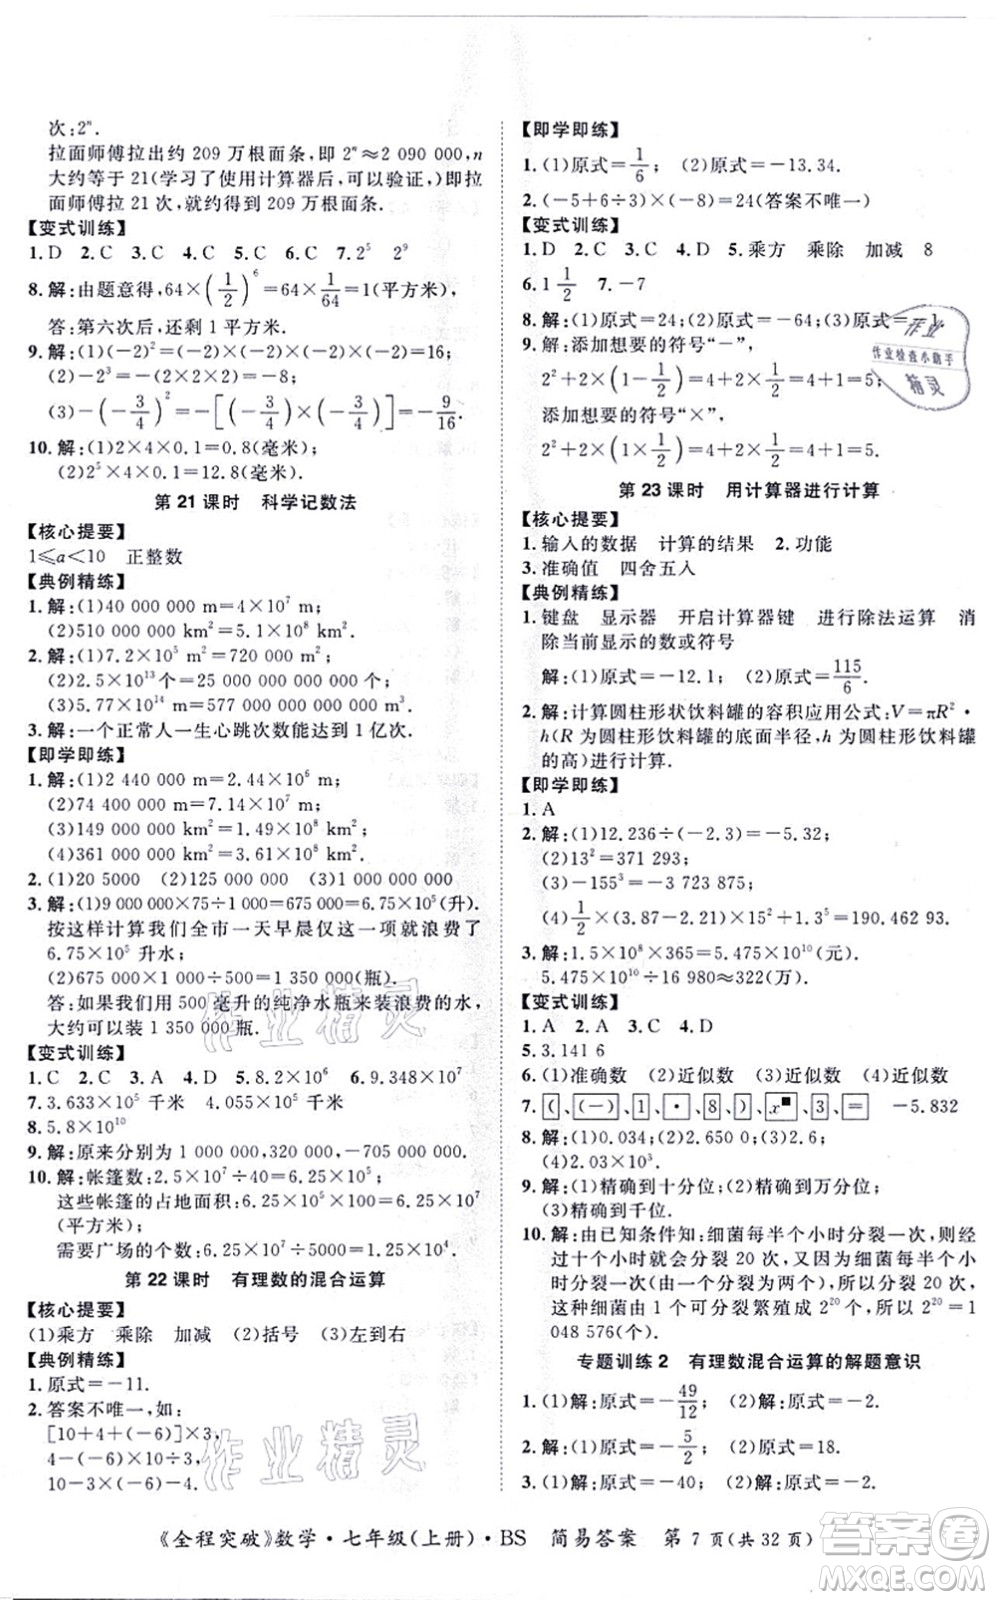 次:2ⁿ.
拉面师傅拉出约 209 万根面条,即 2ⁿ≈2 090 000,n
大约等于 21(学习了使用计算器后,可以验证,)即拉
面师傅拉 21 次,就约得到 209 万根面条.
【变式训练】
1. D 2. C 3. D 4. A 5. C 6. C 7. 2⁵ 2⁹
8. 解:由题意得,64×(1/2)⁶=64×1/64=1(平方米),
答:第六次后,还剩 1 平方米.
9. 解:(1)(-2)²=(-2)×(-2)×(-2)×(-2)=16;
(2)-2³=-(2×2×2)=-8;
(3)-(-3/4)²=-[(-3/4)×(-3/4)]=-9/16.
10. 解:(1)2×4×0.1=0.8(毫米);
(2)2⁵×4×0.1=12.8(毫米).
第 21 课时 科学记数法
【核心提要】
1≤a<10 正整数
【典例精练】
1. 解:(1)40 000 000 m=4×10⁷ m;
(2)510 000 000 km²=5.1×10⁸ km².
2. 解:(1)7.2×10⁵ m²=720 000 m²;
(2)2.5×10¹³个=25 000 000 000 000 个;
(3)5.77×10¹⁴ m³=577 000 000 000 000 m³.
3. 解:一个正常人一生心跳次数能达到 1 亿次.
【即学即练】
1. 解:(1)2 440 000 m=2.44×10⁶ m;
(2)74 400 000 m=7.14×10⁷ m;
(3)149 000 000 m²=1.49×10⁸ m²;
(4)361 000 000 m²=3.61×10⁸ m².
2. (1)20 5000 (2)125 000 000 (3)1 000 000
3. 解:(1)9 000 000×75÷1 000=6.75×10⁵(升).
按这样计算我们全市一天早晨仅这一项就浪费了
6.75×10⁵ 升水;
(2)675 000×1 000÷500=1 350 000(瓶).
答:如果我们用 500 毫升的纯净水瓶来装浪费的水,
大约可以装 1 350 000瓶.
【变式训练】
1. C 2. C 3. A 4. D 5. 8.2×10⁶ 6. 9.348×10⁷
7. 3.633×10⁵ 千米 4.055×10⁵ 千米
8. 5.8×10¹⁰
9. 解:原来分别为 1 300 000 000,204 000,3 141 400.
10. 解:帐篷数:2.5×10⁷÷40=6.25×10⁵(顶);
这些帐篷的占地面积:6.25×10⁵×100=6.25×10⁷
(平方米);
需要广场的个数:6.25×10⁷÷5 000=12 500(个).
第 22 课时 有理数的混合运算
【核心提要】
(1)乘方 乘除 加减 (2)括号 (3)左到右
【典例精练】
1. 原式=-11.
2. 答案不唯一,如:
[10+4+(-6)]×3,
4-(-6)×10÷3,
10-3×(-6)-4.
【即学即练】
1. (1)原式=1/6; (2)原式=-13.34.
2. (-5+6÷3)×(-8)=24(答案不唯一)
【变式训练】
1. D 2. C 3. D 4. D 5. 乘方 乘除 加减 8
6. 1 1/2 7. -7
8. 解:(1)原式=24;(2)原式=-64;(3)原式=-1
9. 解:添加想要的符号"-",
2²+2×(1-1/2)=4+2×1/2=4+1=5.
添加想要的符号"×",
2²+2×(1×1/2)=4+2×1/2=4+1=5.
第 23 课时 用计算器进行计算
【核心提要】
1. 输入的数据 计算的结果 2. 功能
3. 准确值 四舍五入
【典例精练】
1. 键盘 显示器 开启计算器键 进行除法运算 消
除当前显示的数或符号
解:(1)原式=-12.1;(2)原式=115/6.
2. 解:计算圆柱形状饮料罐的容积应用公式:V=πR²·
h(R 为圆柱形饮料罐的底面半径,h 为圆柱形饮料罐
的高)进行计算.
【即学即练】
1. A
2. 解:(1)12.236÷(-2.3)=-5.32;
(2)13²=371 293;
(3)-155³=-3 723 875;
(4)1/2×(3.87-2.21)×15²+1.5⁵=190.462 93.
3. 1.5×10⁸×365=5.475×10¹⁰(元).
5.475×10¹⁰÷16 980≈322(万).
【变式训练】
1. A 2. A 3. C 4. D
5. 3.141 6
6. (1)准确数 (2)近似数 (3)近似数 近似数
7. (、(-)、1、·、8、)、x■、3、= -5.832
8. 解:(1)0.034;(2)2.650 0;(3)1.60;
(4)2.03×10³.
9. 解:(1)精确到十分位;(2)精确到万分位;
(3)精确到千位.
10. 解:由已知条件知:细菌每半个小时分裂一次,则经
过十个小时就会分裂 20 次,又细菌每半个小时
分裂一次(一个分裂为两个),所以分裂 20 次后,
这种细菌由 1 个可分裂繁殖成 2²⁰个. 2²⁰=1
048 576(个).
专题训练 2 有理数混合运算的解题意识
1. (1)解:原式=-49/12 (2)解:原式=-2.
2. 解:(1)原式=-5/2 (2)原式=18.
3. (1)解:原式=-40; (2)解:原式=-2.
《全程突破》数学·七年级(上册)·BS 简易答案 第 7 页(共 32 页)
作业
作业检查小助手
精灵
作业精灵
作业精灵
MXQE.COM